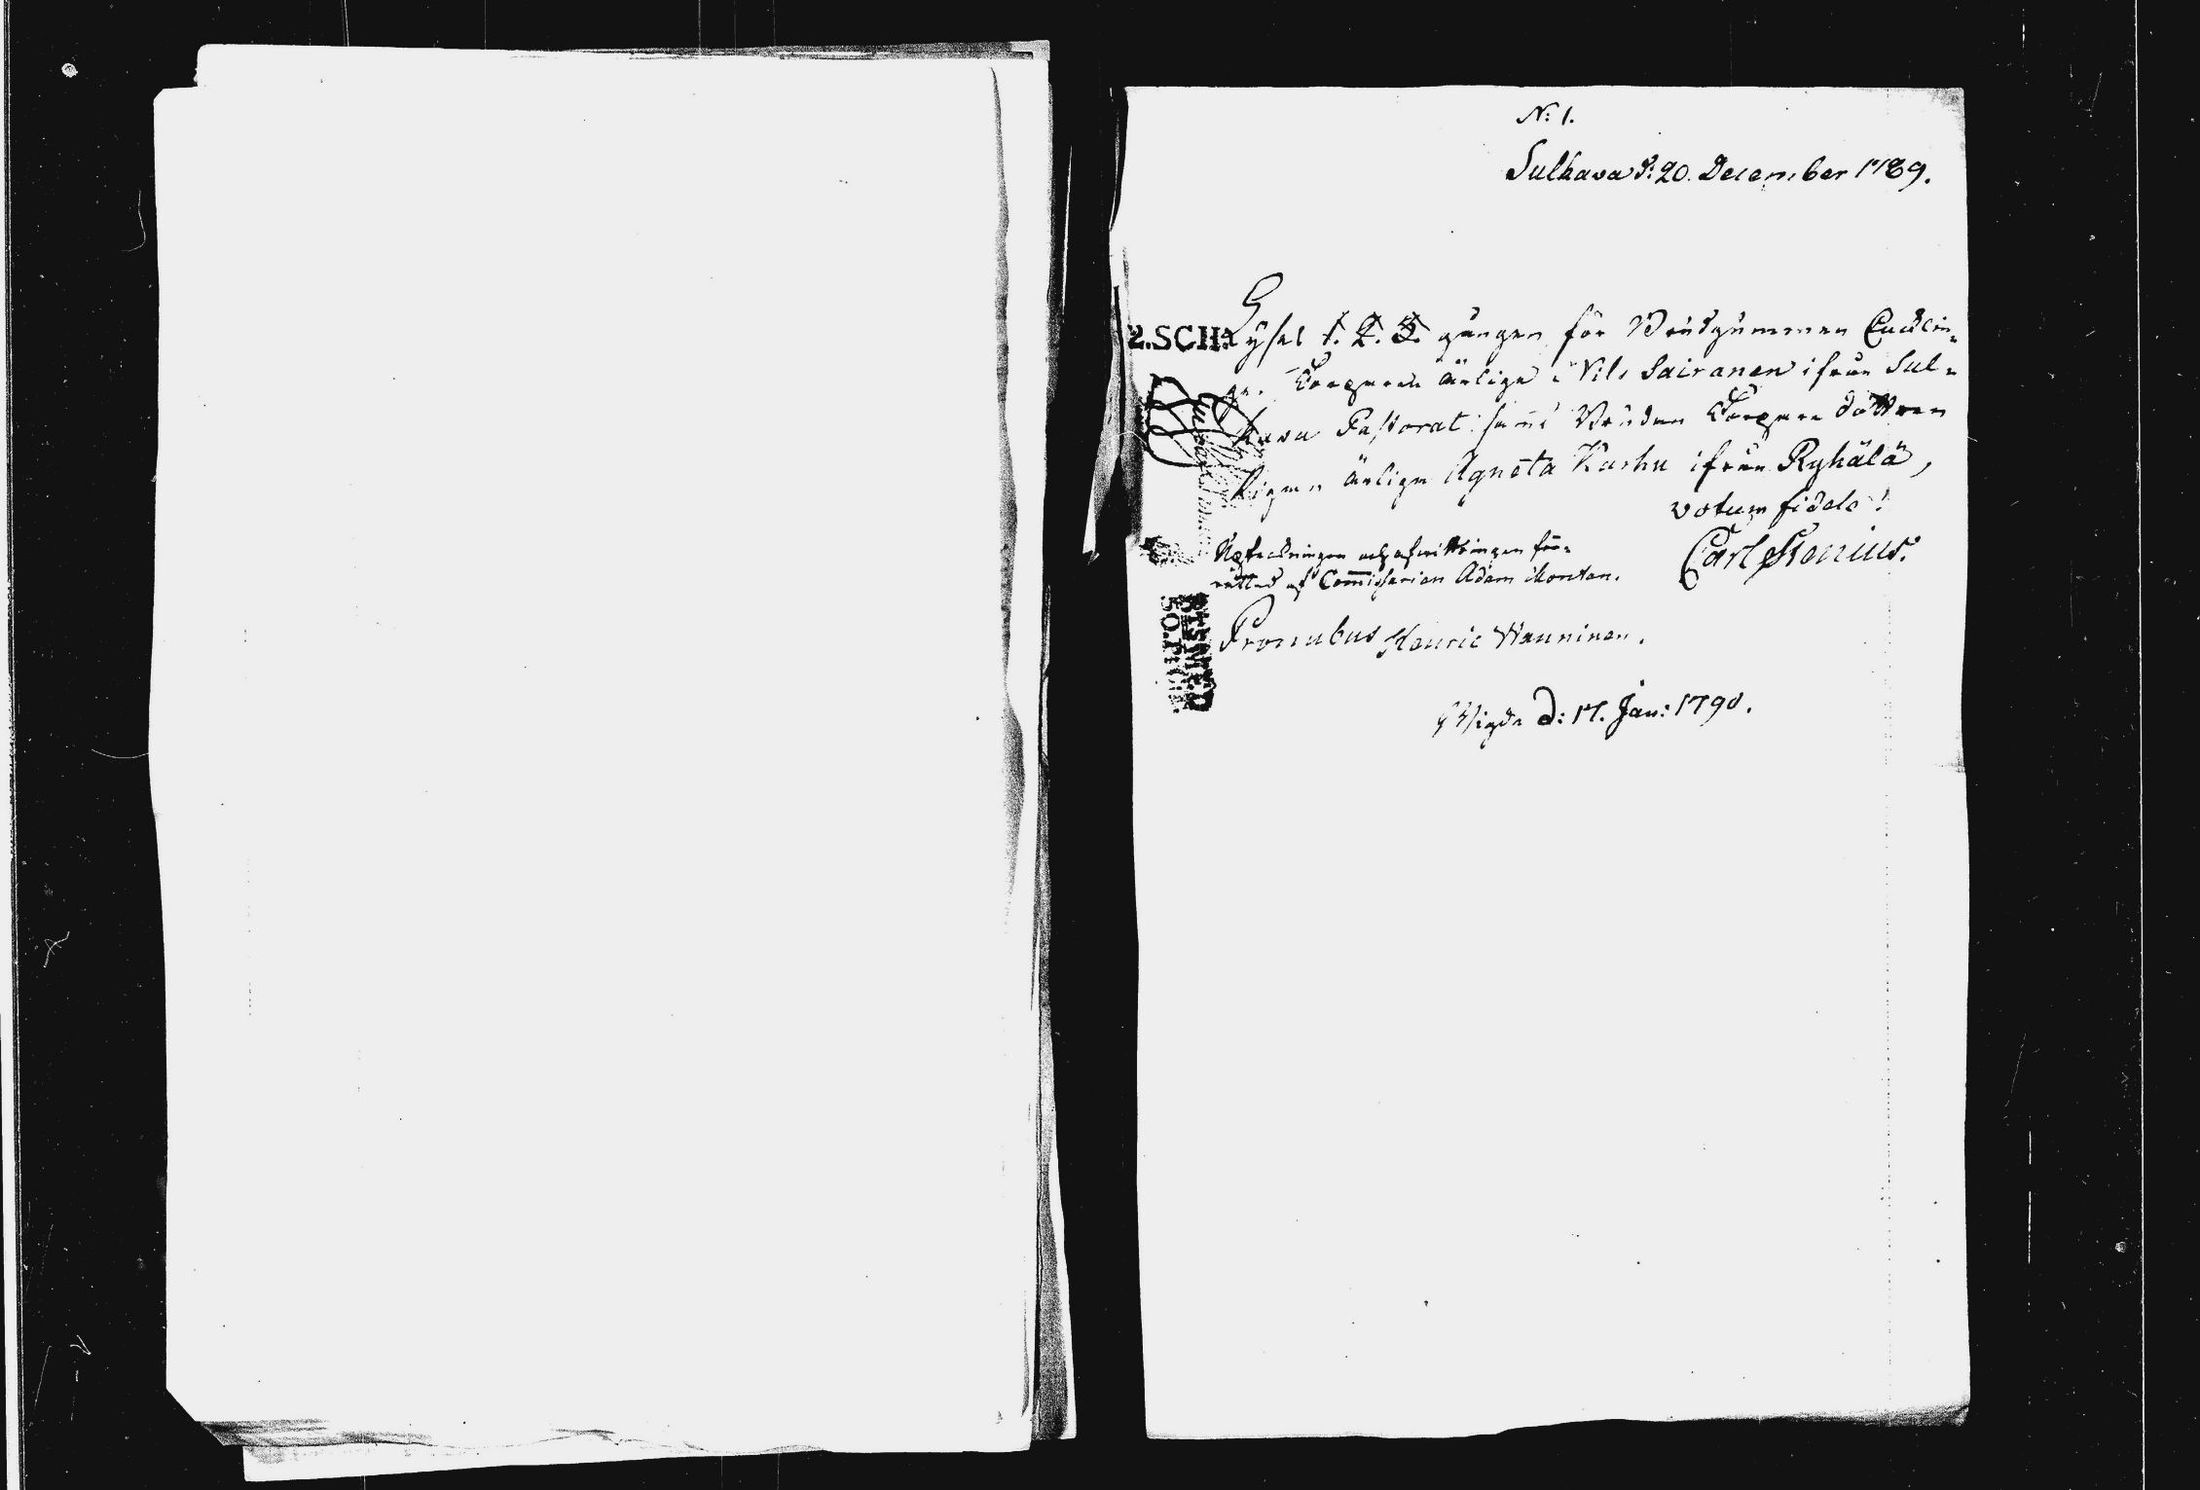 N: 1.
Sulkava d: 20. December 1789.
2.SCH:
Lyses 1. 2. 3. gången för Brudgummen Enckling,
Torparen ärlige Nils Sairanen ifrån Sul-
kava Pastorat samt Bruden Torpare dottren
Pigan ärliga Agneta Karhu ifrån Ryhälä,
votum fidele!
Carl Stenius.
Upteckningen och afwittringen för-
rättad af Commissarien Adam Montan.
Pronubus Henric Wänninen.
Wigde d: 17. Jan: 1790.